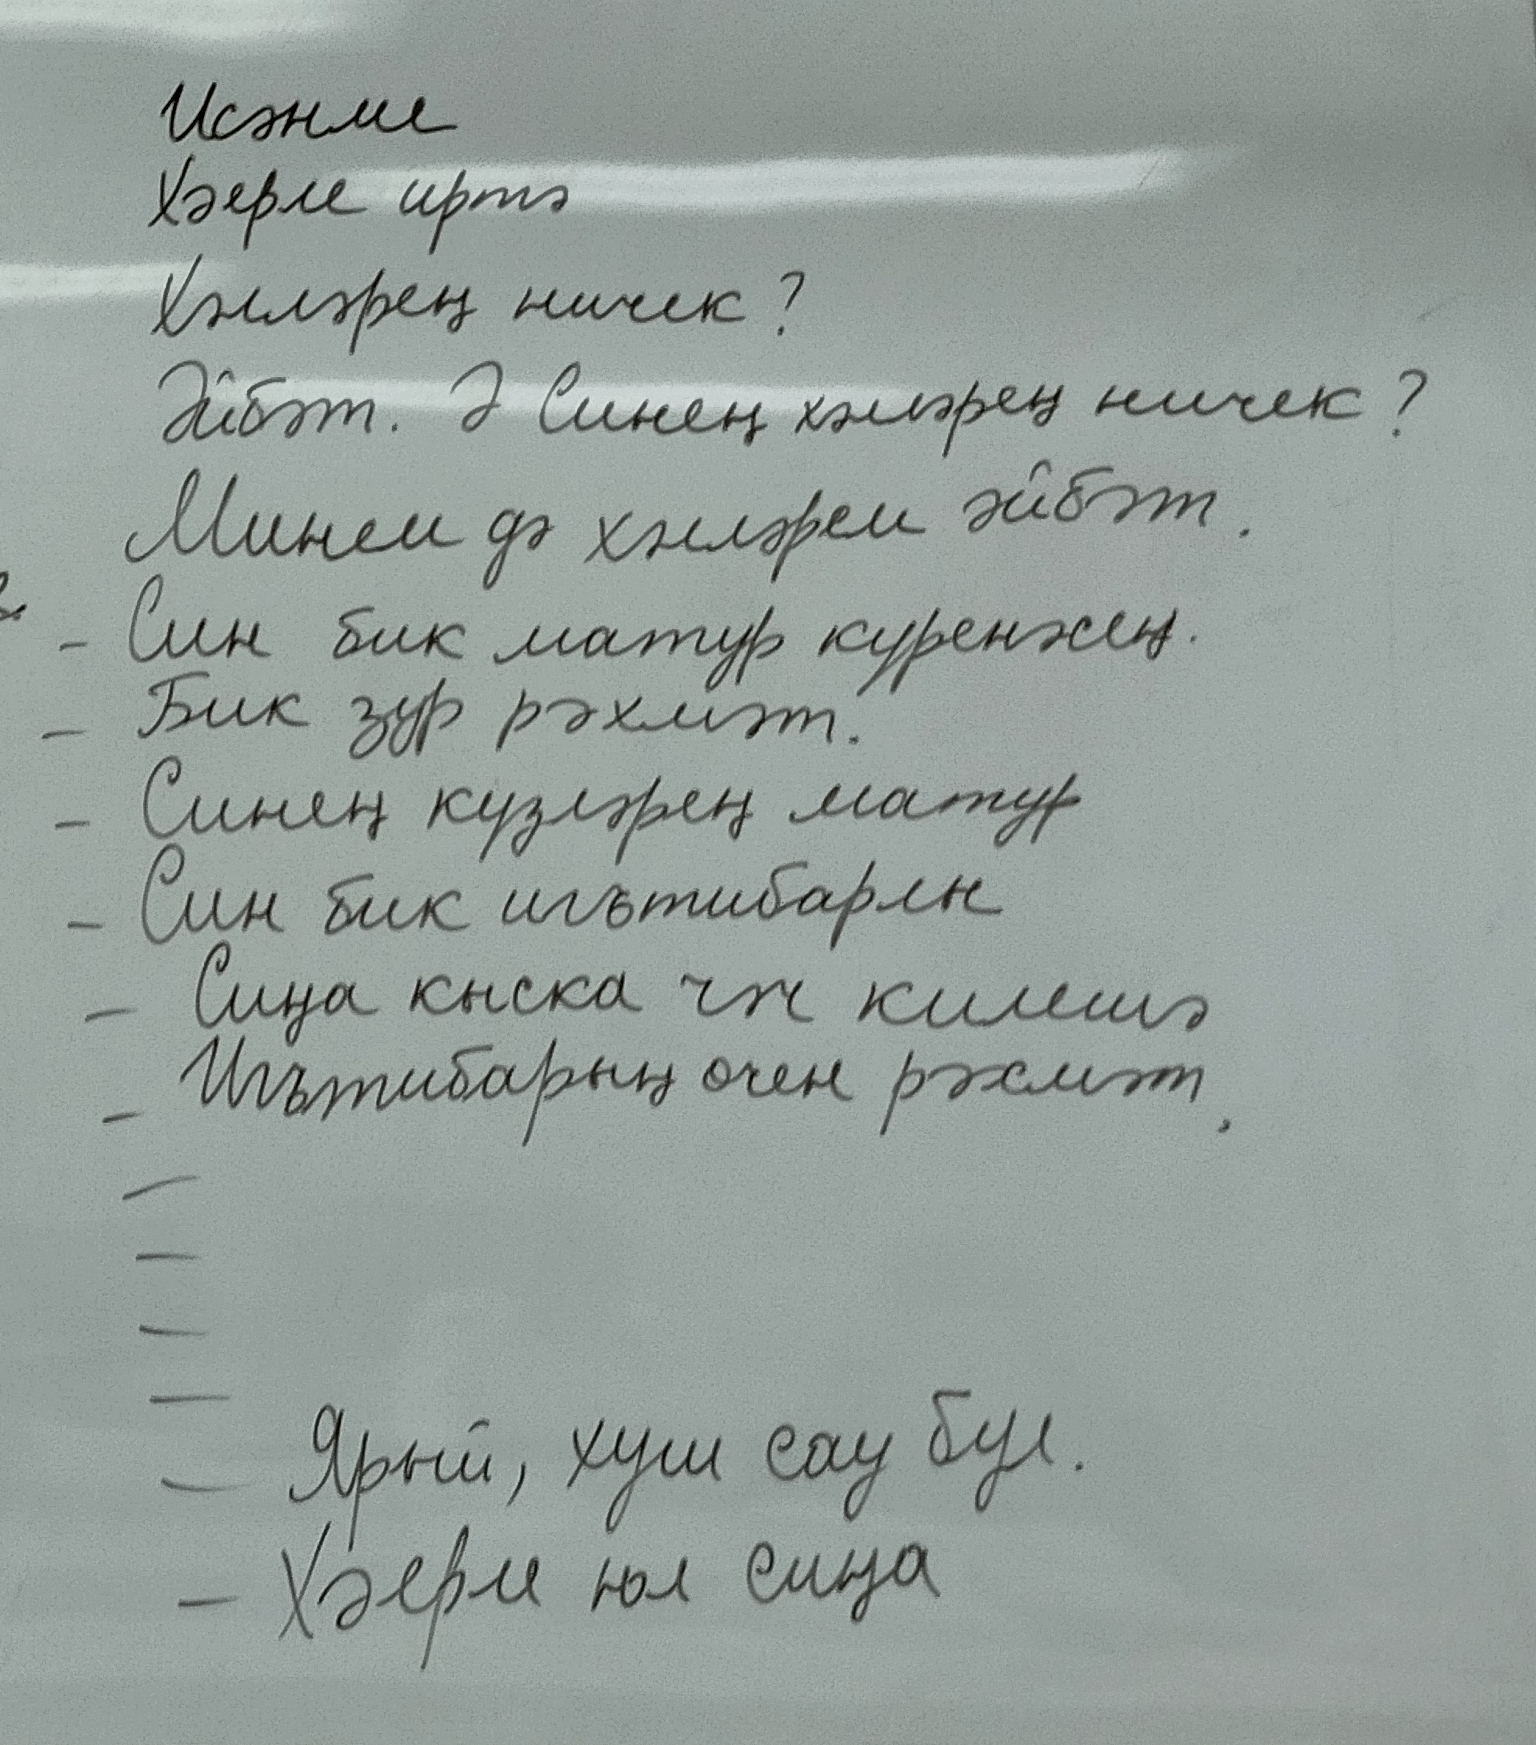 Исәнме
Хәерле иртә
Хәлләрең ничек?
Әйбәт. Ә Синең хәлләрең ничек?
Минем дә хәлләрем әйбәт.
- Син бик матур күренәсең.
- Бик зур рәхмәт.
- Синең күзләрең матур
- Син бик игътибарлы
- Сиңа кыска чәч килешә
- Игътибарың өчен рәхмәт.
-
-
-
-
- Ярый, хуш сау бул.
- Хәерле юл сиңа